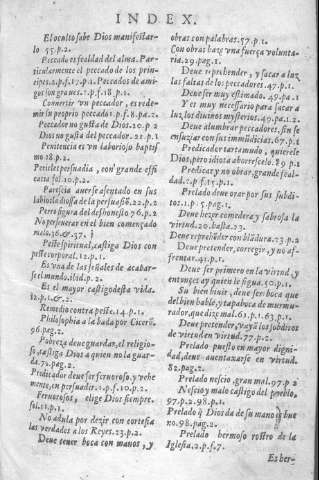 INDEX.
El oculto sabe Dios manifestar-
lo 55.p.2.
Peccado es fealdad del alma. Par-
ticularmente el peccado de los prin-
cipes.2.p.f.17.p.1. Peccados de ami-
gos son graues.1.p.f.18.p.1.
Conuertir vn peccador, es rede-
mir in proprio peccado 1.p.f.8.pa.2.
Peccador no gusta de Dios.20.p 2
Dios no gusta del peccador.21 p.1
Penitencia es vn laborioso baptis-
mo 18.p.2.
Pericles persuadia, con grande effi
cacia fol.10.p.2.
Parescia auerse assentado en sus
labios la diossa de la persuasiõ.22.p.2
Perro figura del deshonesto 76.p.2
No perseuerar en el bien começado
malo.36.&.37.
Peste spiritual, castiga Dios con
peste corporal.12.p.1.
Es vna de las señales de acabar-
se el mundo.ibid.p.2.
Es el mayor castigo desta vida.
12.p.1.&.2.
Remedio contra peste.14.p.1.
Philosophia a la bada por Cicerõ.
96.pag.2.
Pobreza deue guardar, el religio-
so, castiga Dios a quien no la guar-
da.72.pag.2.
Predicador deue ser feruoroso, y vehe
mente, en persuadir.1.p.f.10.p.2.
Feruorosos, elige Dios siempre.
fol.11.p.1.
No adula por dezir con cortesia
las verdades a los Reyes.23.p.2.
Deue tener boca con manos, y
obras con palabras.57.p.1.
Con obras haze vna fuerça volunta-
ria.29.pag.1.
Deue reprehender, y sacar a luz
las faltas de los peccadores.47.p.1.
Deue ser muy estimado.49.pa.1
Y es muy necessario para sacar a
luz los diuinos mysterios.49.pa.1.2.
Deue alumbrar peccadores, sin se
ensuziar con sus immundicias.67.p.1
Predicador tartamudo, quierele
Dios, pero idiota aborrescele.89 p.1
Predicar y no obrar, grande feal-
dad.2.p.f.15.p.1.
Prelado deue orar por sus subdi-
tos.1.p.5.pag.1.
Deue hazer comedera y sabrosa la
virtud.20.basta.23.
Deue reprehẽder con blãdura.23.p.2
Deue pretender, corregir, y no af-
frentar.41.p.1.
Deue ser primero en la virtud, y
entonces ay quien le sigua.40.p.1.
Su bien biuir, deue ser boca que
del bien hable, y tapaboca de murmu-
rador, que dize mal.61.p.1.63.p.1.
Deue pretender, vaya los subditos
de virtud en virtud.77.p.2.
Prelado puesto en mayor digni-
dad, deue auentaxarse en virtud.
82.pag.2.
Prelado nescio, gran mal.97.p.2
Nescio y malo castigo del pueblo.
97.p.2.98.p.1.
Prelado q̃ Dios da de su mano es bue
no.98.pag.2.
Prelado hermoso rostro de la
Iglesia.2.p.f.7.
Es her-